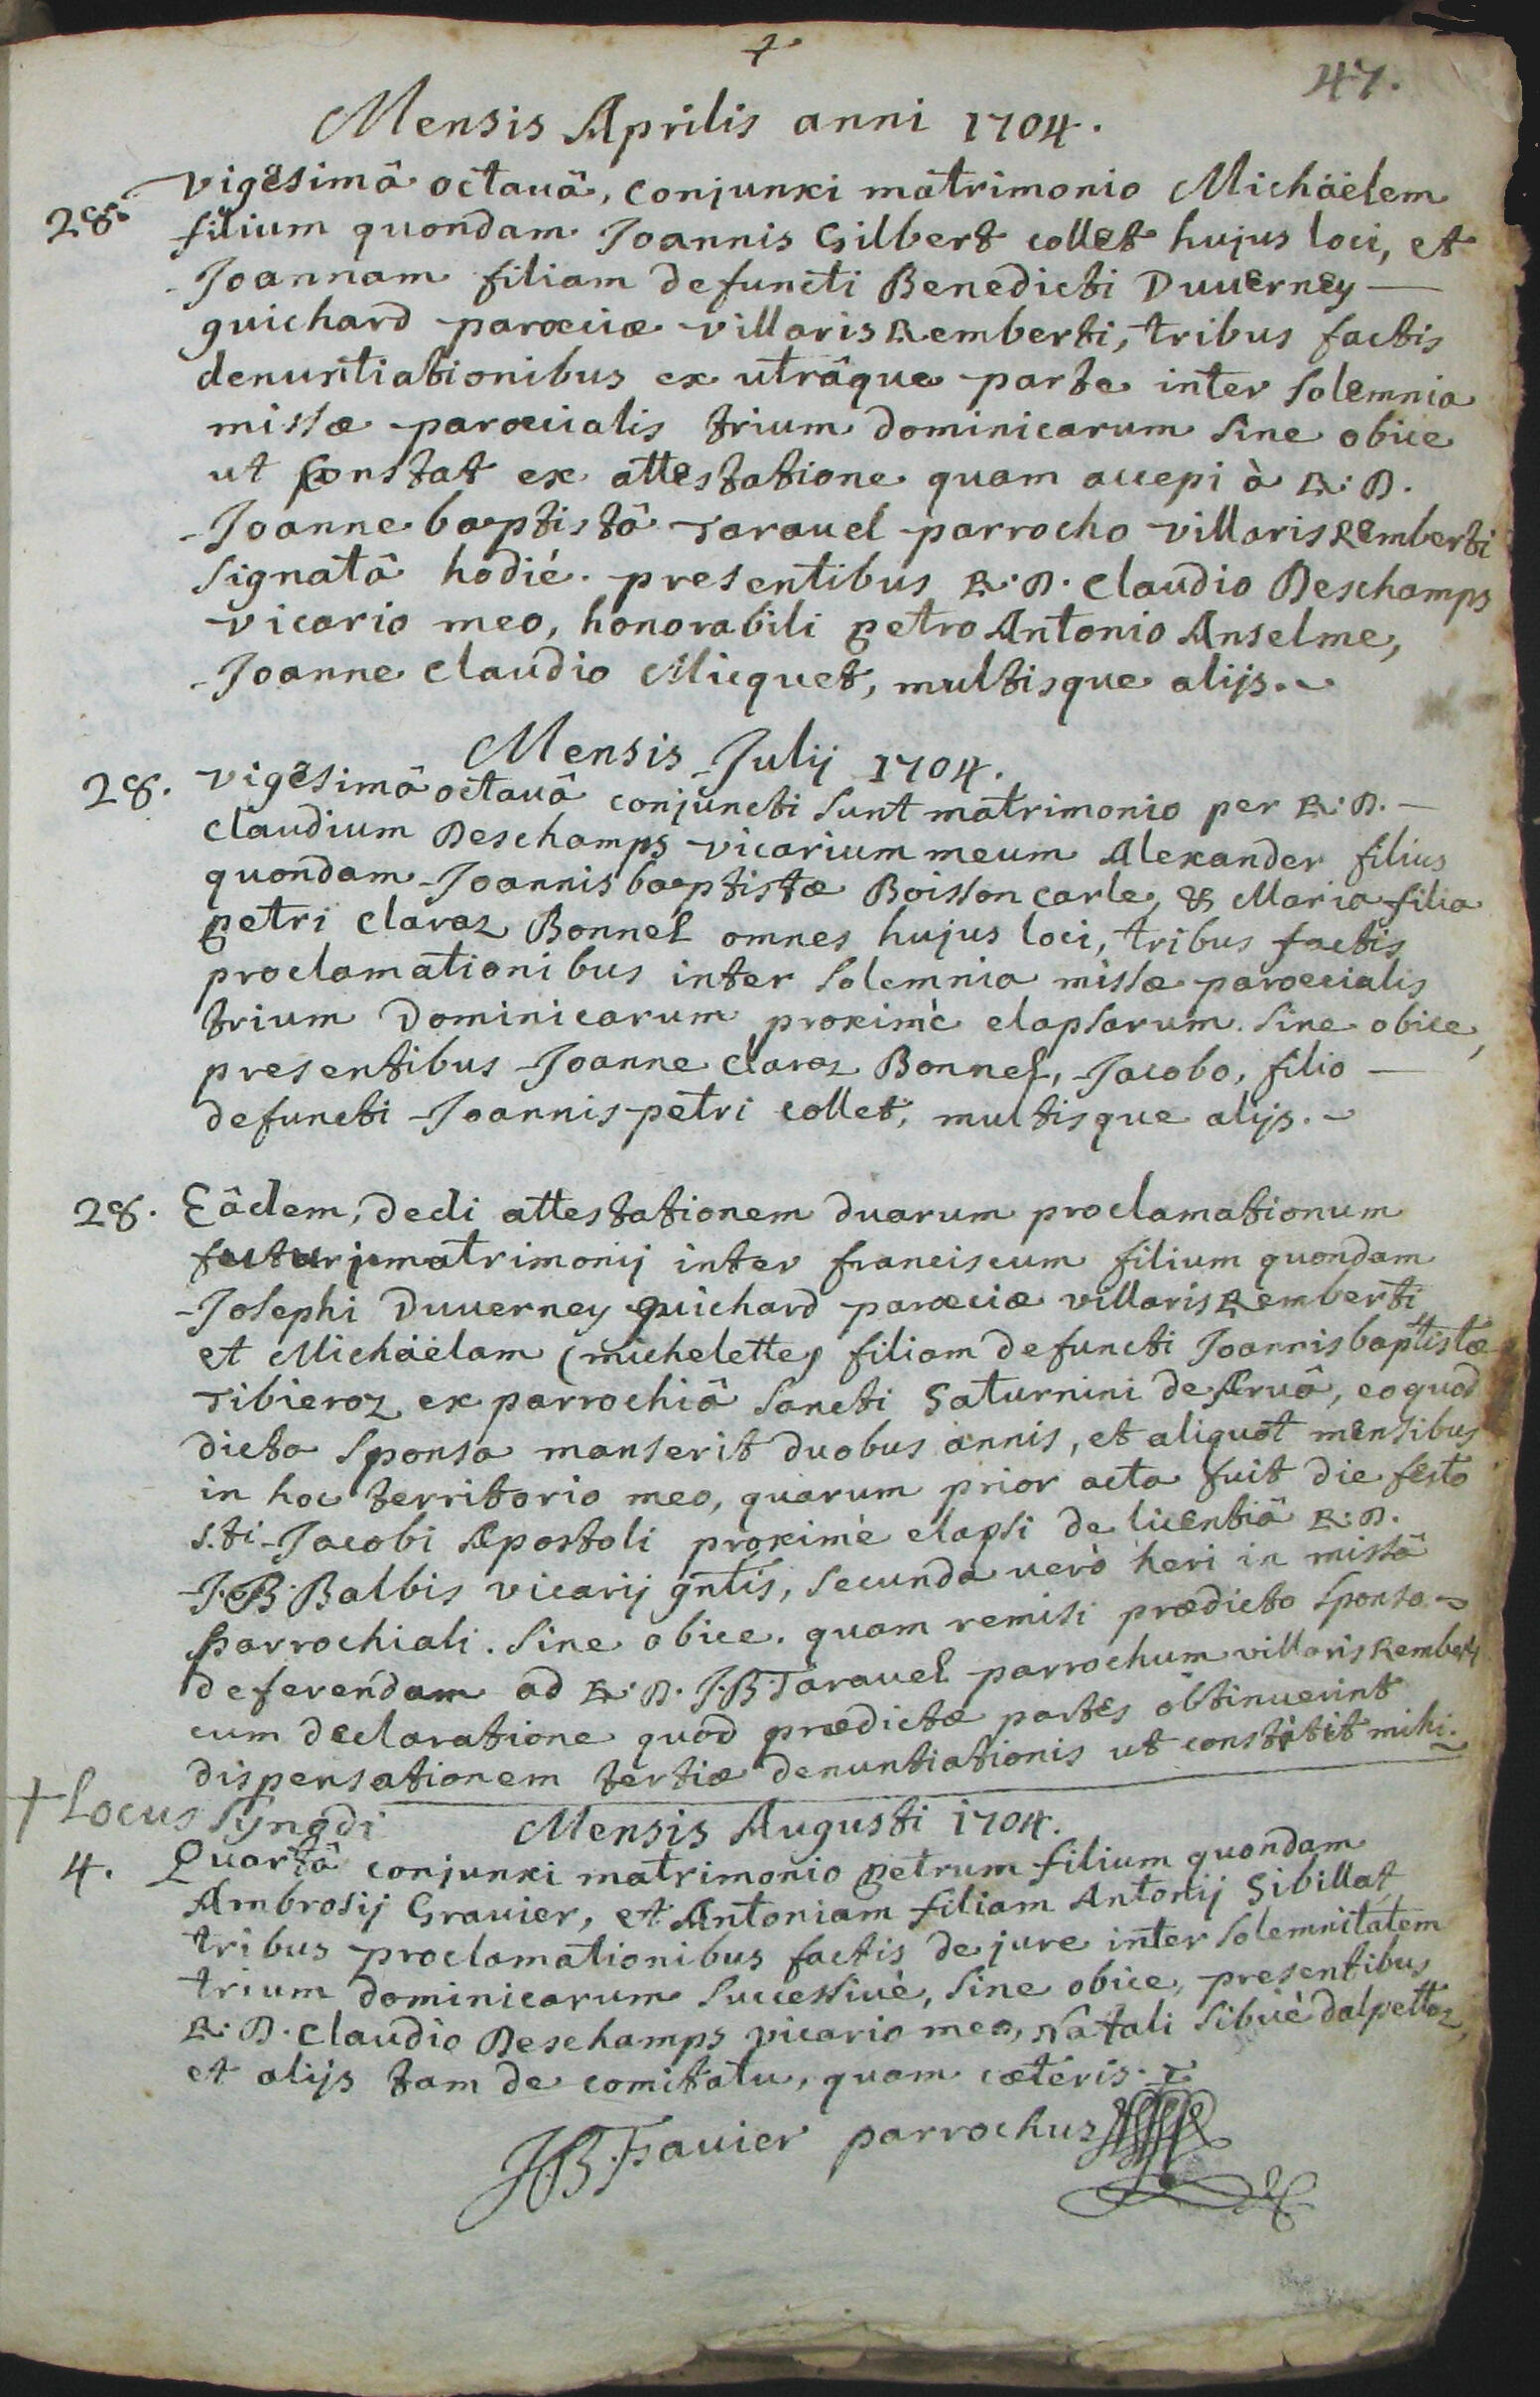 47.
Mensis Aprilis anni 1704.
28. vigesimâ octauâ, conjunxi matrimonio Michäelem
filium quondam Joannis Gilbert collet hujus loci, et
Joannam filiam defuncti Benedicti Duuerney —
guichard parœciæ villarisRemberti, tribus factis
denuntiationibus ex utrâque parte inter solemnia
missæ parœcialis trium dominicarum sine obice
ut constat ex attestatione quam accepi à R: D.
Joanne baptistâ Tarauel parrocho villarisRemberti
signatâ hodié. presentibus R: D. Claudio Deschamps
vicario meo, honorabili petro Antonio Anselme,
Joanne Claudio Micquet, multisque alijs.
Mensis Julij 1704.
28. vigesimâ octauâ conjuncti sunt matrimonio per R: D. —
Claudium Deschamps vicarium meum Alexander filius
quondam Joannis baptistæ Boisson carle, & Maria filia
petri claraz Bonnel omnes hujus loci, tribus factis
proclamationibus inter solemnia missæ parœcialis
trium Dominicarum proximè elapsarum. sine obice,
presentibus Joanne claraz Bonnel, Jacobo, filio —
defuncti Joannis petri collet, multisque alijs.
28. Eâdem, dedi attestationem duarum proclamationum
futurj matrimonij inter franciscum filium quondam
Josephi Duuerney guichard parœciæ villarisRemberti
et Michäelam (michelette) filiam defuncti Joannis baptistæ
Tibieroz ex parrochiâ sancti Saturnini de Aruâ, eo quod
dicta sponsa manserit duobus annis, et aliquot mensibus
in hoc territorio meo, quarum prior acta fuit die festo
s.ti Jacobi Apostoli proximè elapsi de licentiâ R: D.
J: B: Balbis vicarij gntis, secunda verò heri in missâ
parrochiali. sine obice. quam remisi prædicto sponso
deferendam ad R: D. J: B: Tarauel parrochum villarisRemberti
cum declaratione quod prædictæ partes obtinuerint
dispensationem tertiæ denuntiationis ut constitit mihi.
+ Locus syngdi
Mensis Augusti 1704.
4. Quartâ conjunxi matrimonio petrum filium quondam
Ambrosij Grauier, et Antoniam filiam Antonij Sibillat,
tribus proclamationibus factis de jure inter solemnitatem
trium dominicarum successiuè, sine obice, presentibus
R: D. Claudio Deschamps vicario meo, Natali Sibué dalpettaz,
et alijs tam de comitatu, quam cæteris.
JB Fauier parrochus